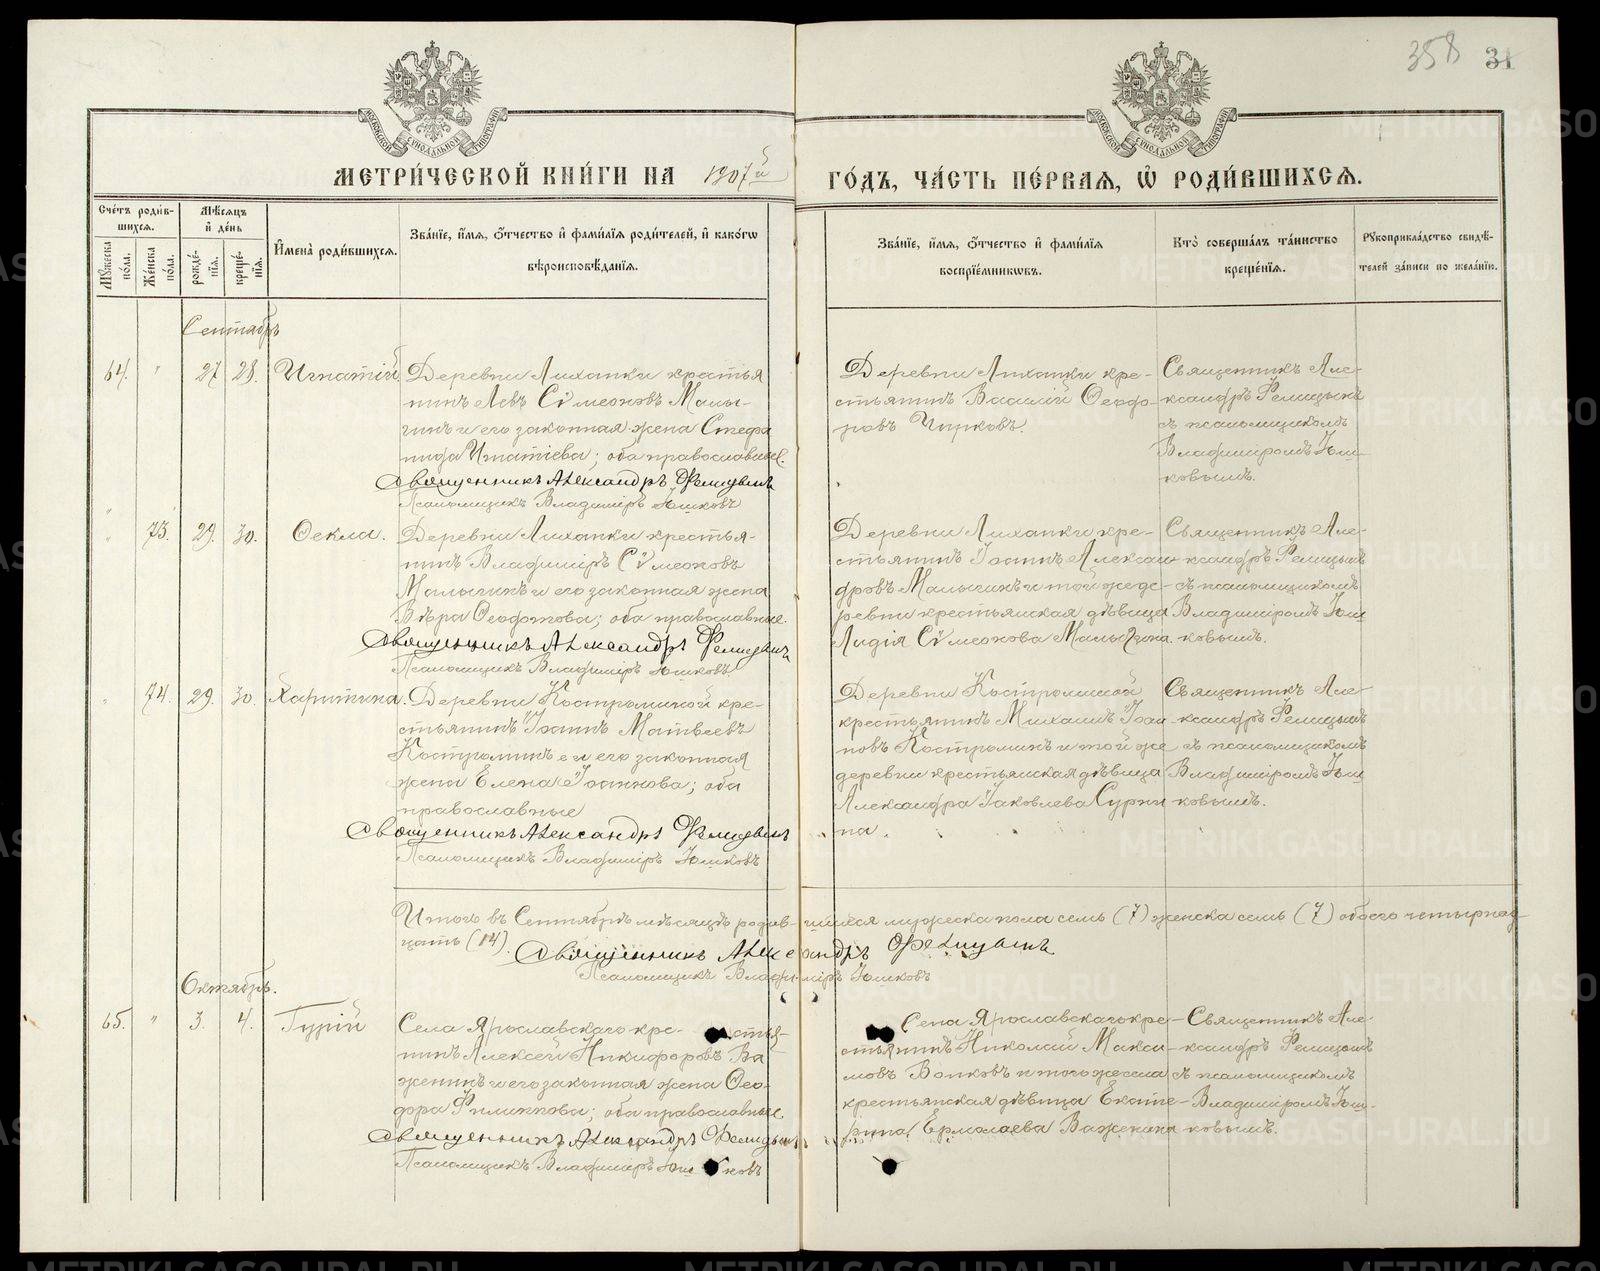 358 31
МОСКОВСКОЙ СѴНОДАЛЬНОЙ ТИПОГРАФІИ
МОСКОВСКОЙ СѴНОДАЛЬНОЙ ТИПОГРАФІИ
МЕТРИ́ЧЕСКОЙ КНИ́ГИ НА 1907й ГО́ДЪ, ЧА́СТЬ ПЕ́РВАЯ, Ѡ҆ РОДИ́ВШИХСЯ.
Сче́тъ роди́в-
шихся.
Мѣ́сяцъ
и҆ де́нь
Мꙋ́жеска по́ла.
Же́нска по́ла.
рожде́-
нїя.
креще́-
нїя.
И҆мена̀ роди́вшихся.
Зва́нїе, и҆́мя, ѻ҆́тчество и҆ фамилїя роди́телей, и҆ како́гѡ
вѣроисповѣ́данїя.
Зва́нїе, и҆́мя, ѻ҆́тчество и҆ фами́лїя
воспрїе́мникѡвъ.
Кто̀ соверша́лъ та́инство
креще́нїя.
Рꙋкоприкла́дство свидѣ́-
телей за́писи по жела́нїю.
Сентябрь
64. " 27 28. Игнатій
Деревни Лиханки крестья
нинъ Левъ Сѵмеоновъ Малы-
гинъ и его законная жена Стефа
нида Игнатіева; оба православные.
Священникъ Александръ
Псаломщикъ Владиміръ Юшковъ
Деревни Лиханки кре-
стьянинъ Василій Ѳеодо-
ровъ Чирковъ.
Священникъ Але-
ксандръ
съ псаломщикомъ
Владиміромъ Юш-
ковымъ.
" 73. 29. 30. Ѳекла.
Деревни Лиханки крестья-
нинъ Владиміръ Сѵмеоновъ
Малыгинъ и его законная жена
Вѣра Ѳеодотова; оба православные.
Священникъ Александръ
Псаломщикъ Владиміръ Юшковъ
Деревни Лиханки кре-
стьянинъ Іоаннъ Алексан-
дровъ Малыгинъ и той же де-
ревни крестьянская дѣвица
Лидія Сѵмеонова Малыгина.
Священникъ Але-
ксандръ
съ псаломщикомъ
Владиміромъ Юш
ковымъ.
" 74. 29. 30. Харитина.
Деревни Костроминой кре-
стьянинъ Іоаннъ Матвѣевъ
Костроминъ и его законная
жена Елена Іоаннова; оба
православные
Священникъ Александръ
Псаломщикъ Владиміръ Юшковъ
Деревни Костроминой
крестьянинъ Михаилъ Іоан
новъ Костроминъ и той же
деревни крестьянская дѣвица
Александра Іаковлева Сурни
на.
Священникъ Але-
ксандръ
съ псаломщикомъ
Владиміромъ Юш
ковымъ.
Итого въ Сентябрѣ мѣсяцѣ родив-шихся мужеска пола семь (7) женска семь (7) обоего четырнад
цать (14).
Священникъ Александръ
Псаломщикъ Владиміръ Юшковъ
Октябрь.
65. " 3. 4. Гурій
Села Ярославскаго кре-стья-
нинъ Алексѣй Никифоровъ Ва
женинъ и его законная жена Ѳео-
дора Филиппова; оба православные.
Священникъ Александръ
Псаломщикъ Владиміръ Юшковъ
Села Ярославскаго кре-
стьянинъ Николай Макси-
мовъ Волковъ и того же села
крестьянская дѣвица Екате-
рина Ермолаева Важенина
Священникъ Але-
ксандръ
съ псаломщикомъ
Владиміромъ Юш-
ковымъ.
METRIKI.GASO-URAL.RU